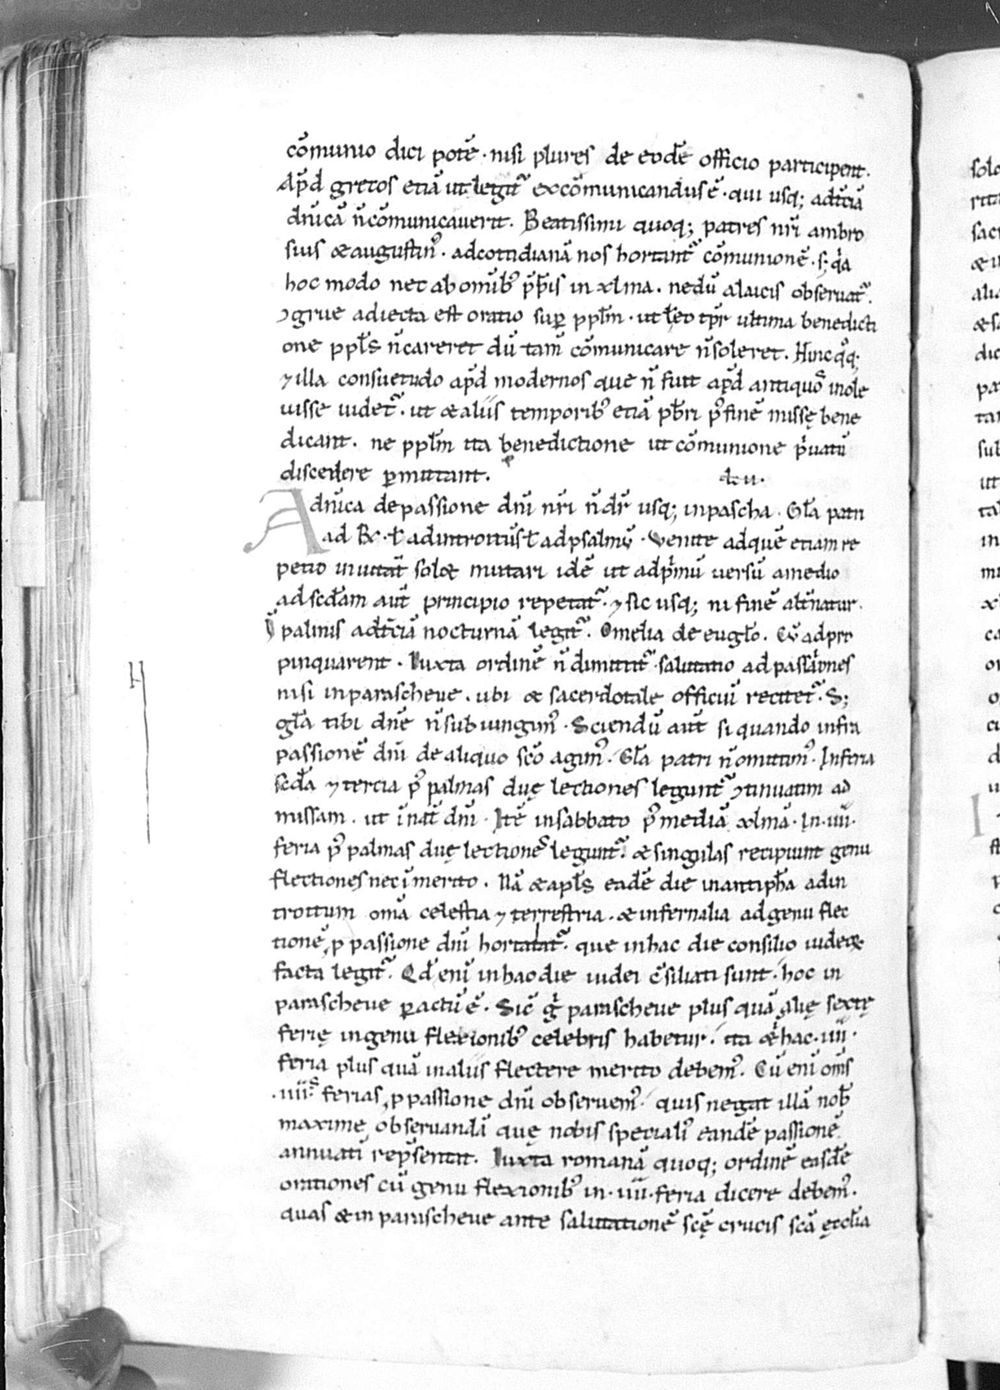 cōmunio dici potē · nisi plures de eodē officio participent.
Apđ grecos etiā ut legit᷑ excōmunicandus ē · qui usq; ad t̄ciā
dn̄icā n̄ cōmunicauerit. Beatissimi quoq; patres nr̄i ambro
sius & augustin᷒ · ad cottidianā nos hortant᷑ cōmunionē · s; q̄a
hoc modo nec ab omīb᷒ p̄p̄is in xlma · nedū a laicis obseruat᷑.
ↄgrue adiecta est oratio suꝑ ppl̄m · ut
one ppl̄s n̄ careret dū tam̄ cōmunicare n̄ soleret. Hinc q̊q;
⁊ illa consuetudo apđ modernos que n̄ fuit apđ antiquos inole
uisse uidet᷑ · ut & aliis temporib᷒ etiā pb̄ri p᷒ finē missę bene
dicant · ne ppl̄m ita benedictione ut cōmunione p̓uatū
discedere ꝑmittant.
A dn̄ica de passione dn̄i nr̄i n̄ dr̄ usq; in pascha · Gl̄a patri
ad ℞ · ł ad introitus ł ad psalmū · Venite ad quē etiam re
petio inuitat̄ solet mutari idē ut ad p̓mū uersū a medio
ad scđam aut̄ principio repetat᷑ · ⁊ sic usq; in finē alt̄natur.
palmis ad t̄ciā nocturnā legit᷑ · Omelia de eugl̄o · Cū adpro
pinquarent · Iuxta ordinē n̄ dimittit᷑ · salutatio ad passiones
nisi in parasceue · ubi & sacerdotale officiū recitet᷑ · S;
gl̄a tibi dn̄e n̄ subiungim᷒ · Sciendū aut̄ si quando infra
passionē dn̄i de aliquo sc̄o agim᷒ · Gl̄a patri n̄ omittim᷒ · In feria
scđa ⁊ tercia p᷒ palmas duę lectiones legunt᷑ ↄtinuatim ad
missam · ut ī nat̄ dn̄i · Itē in sabbato p᷒ mediā xlmā · In · iiii ·
feria p᷒ palmas duę lectiones legunt᷑ · & singulas recipiunt genu
flectiones nec īmerito · Nā & apl̄s eadē die in antiph̄a ad in
troitum omā celestia ⁊ terrestria · & infernalia ad genu flec
tionē, ꝓ passione dn̄i hortatat᷑ · que in hac die consilio iudeoꝝ
facta legit᷑ · Qđ eni in hac die iudei cōsiliati sunt · hoc in
parasceue ꝑactū ē · Sic̄ g̊ parasceue plus quā alię sextę
ferię in genu flexionib᷒ celebris habetur · ita & hac · iiii ·
feria plus quā in aliis flectere merito debem᷒ · Cū eni om̄s
· iiii · ferias, ꝓ passione dn̄i obseruem᷒ · quis negat illā nob̄
maxime obseruandā quę nobis speciali᷒ eandē passionē
annuati rep̄sentat · Iuxta romanā quoq; ordinē easdē
orationes cū genu flexionib᷒ in · iiii · feria dicere debem᷒ ·
quas & in parasceue ante salutationē sc̄ę crucis sc̄a ęccl̄ia